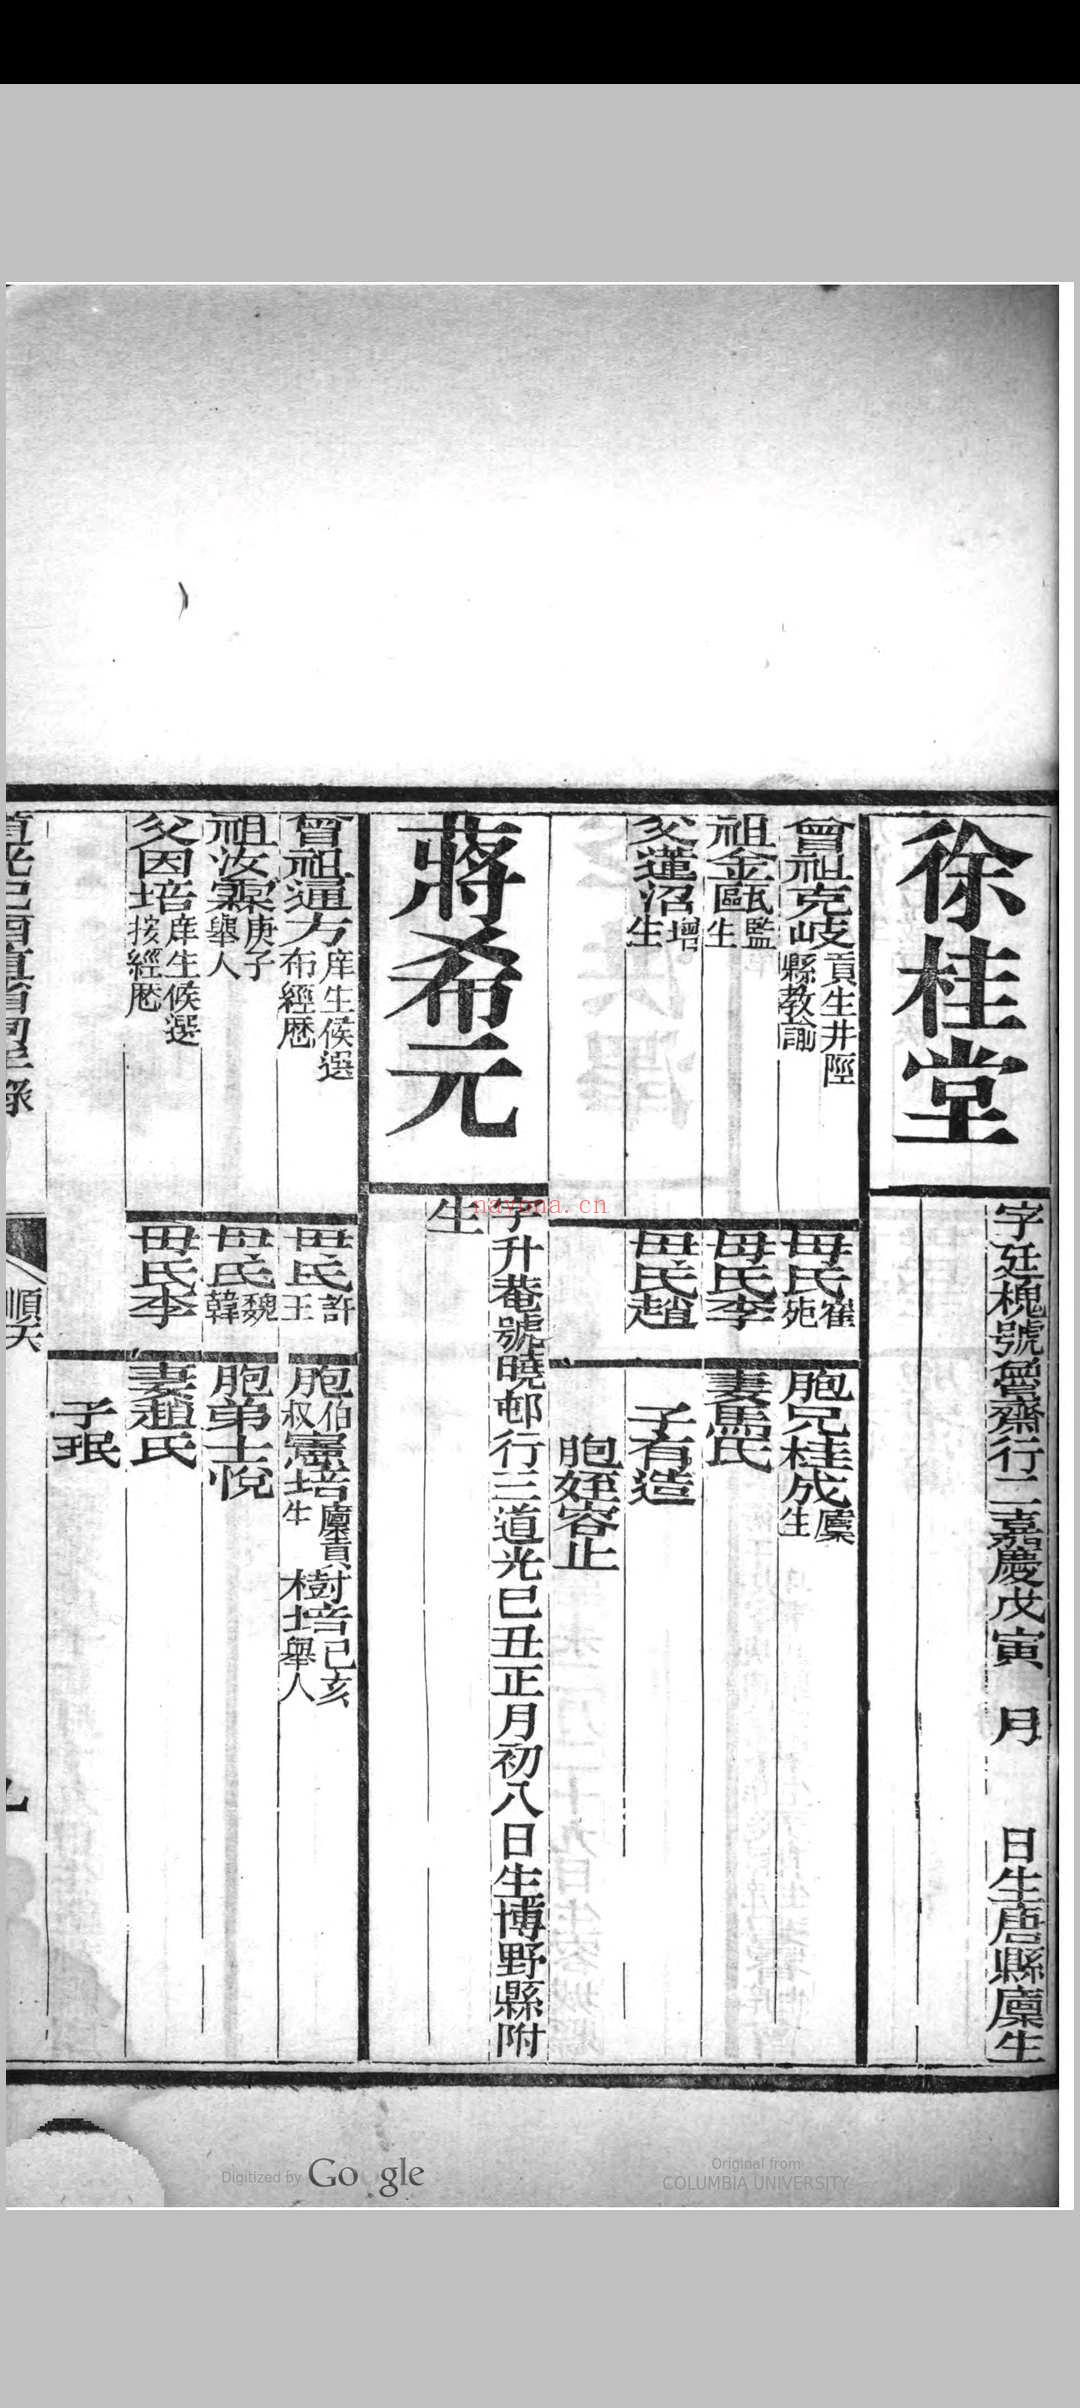 徐桂堂
字廷槐號魯齋行二嘉慶戊寅　月　日生唐縣廩生
曾祖克岐貢生井陘縣教諭
祖金甌監生
父蓮沼增生
母氏崔苑
母氏李
母氏趙
胞兄桂成廩生
妻馬氏
子有造
胞姪容止
蔣希元
字升菴號曉邨行三道光己丑正月初八日生博野縣附
生
曾祖通方庠生候選布經歷
祖汝霖庚子舉人
父因培庠生候選按經歷
母氏許王
母氏魏韓
母氏李
胞伯叔憲培廩貢生樹培己亥舉人
胞弟士悅
妻趙氏
子珉
道光己酉直省同年錄
順天
navona.cn
Digitized by Google
Original from
COLUMBIA UNIVERSITY